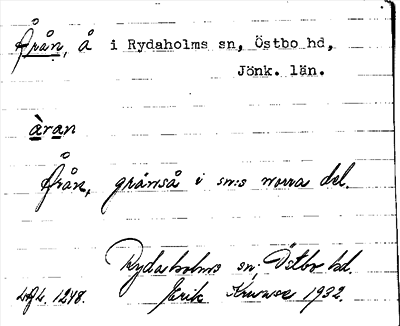 Årån, å i Rydaholms sn, Östbo hd,
Jönk. län.
àran
Årån, gränså i sn:s norra del.
Rydaholms sn, Östbo hd.
1248. Erik 1932.